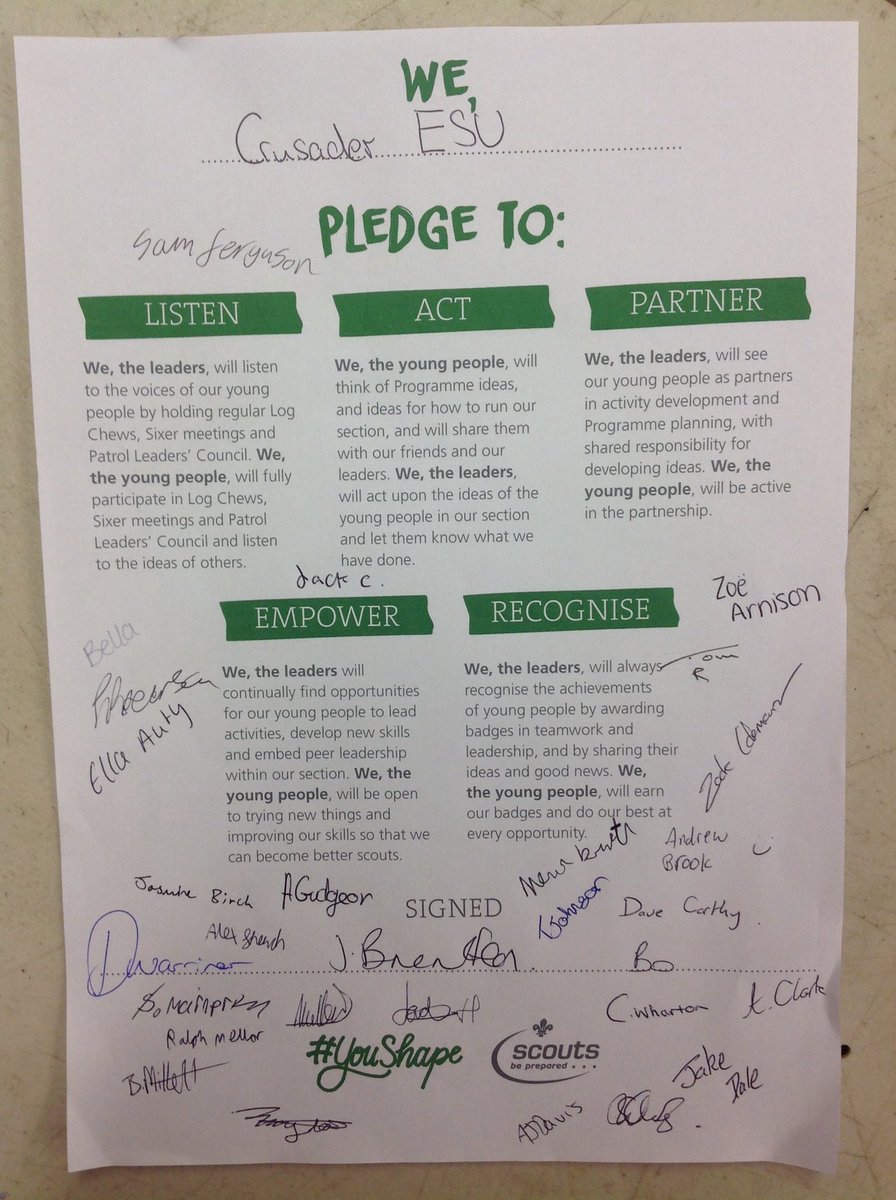 WE,
Crusader ESU
PLEDGE TO:
Sam Ferguson
LISTEN
We, the leaders, will listen
to the voices of our young
people by holding regular Log
Chews, Sixer meetings and
Patrol Leaders' Council. We,
the young people, will fully
participate in Log Chews,
Sixer meetings and Patrol
Leaders' Council and listen
to the ideas of others.
ACT
We, the young people, will
think of Programme ideas,
and ideas for how to run our
section, and will share them
with our friends and our
leaders. We, the leaders,
will act upon the ideas of the
young people in our section
and let them know what we
have done.
PARTNER
We, the leaders, will see
our young people as partners
in activity development and
Programme planning, with
shared responsibility for
developing ideas. We, the
young people, will be active
in the partnership.
Jack C.
Zoë
Arnison
Bella
Ella Auty
EMPOWER
We, the leaders will
continually find opportunities
for our young people to lead
activities, develop new skills
and embed peer leadership
within our section. We, the
young people, will be open
to trying new things and
improving our skills so that we
can become better scouts.
RECOGNISE
We, the leaders, will always
recognise the achievements
of young people by awarding
badges in teamwork and
leadership, and by sharing their
ideas and good news. We,
the young people, will earn
our badges and do our best at
every opportunity.
Zack
Andrew
Brook
Jasmine Birch
A Gudgeon
SIGNED
Johnson
Dave Carthy
Alex
D Warriner
Bo
C. Wharton
A. Clark
Ralph Mellor
#YouShape
scouts
be prepared . . .
Jake
Dale
B. Millett
A Davis